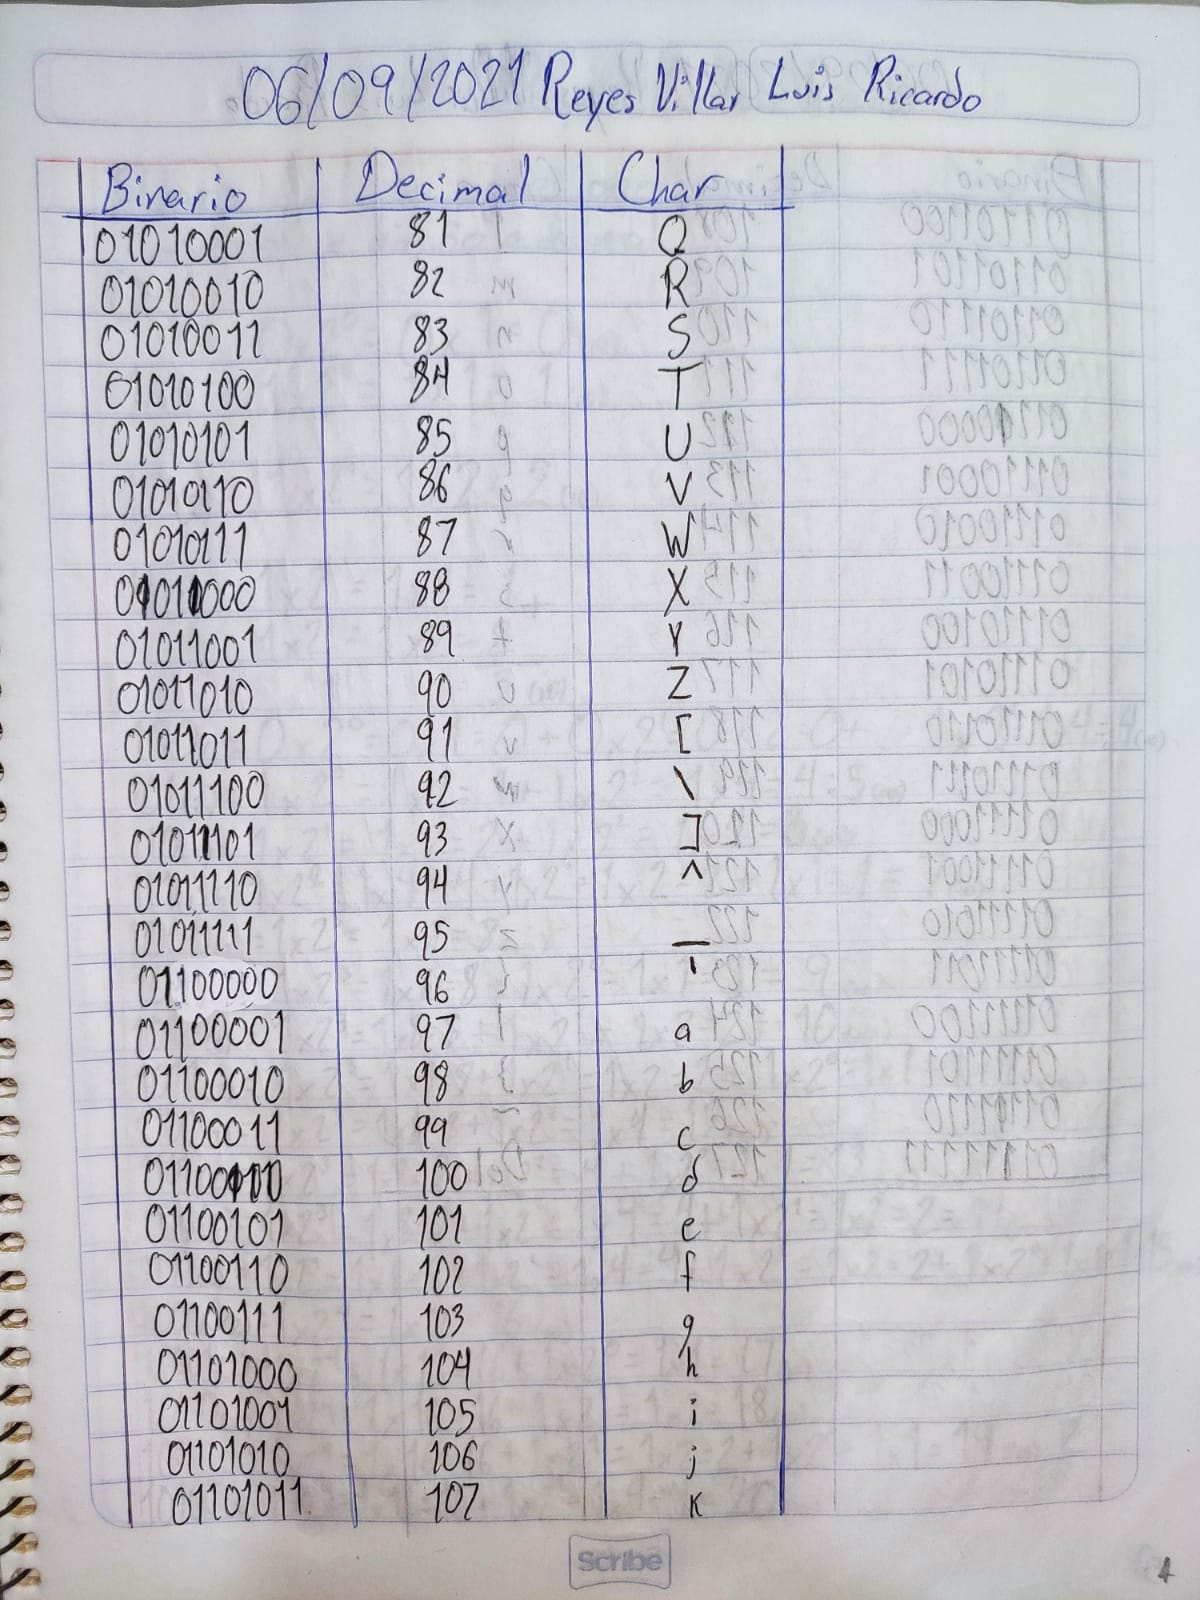 06/09/2021 Reyes Villar Luis Ricardo
Binario Decimal Char
01010001 81 Q
01010010 82 R
01010011 83 S
01010100 84 T
01010101 85 U
01010110 86 V
01010111 87 W
01011000 88 X
01011001 89 Y
01011010 90 Z
01011011 91 [
01011100 92 \
01011101 93 ]
01011110 94 ^
01011111 95 _
01100000 96 '
01100001 97 a
01100010 98 b
01100011 99 c
01100100 100 d
01100101 101 e
01100110 102 f
01100111 103 g
01101000 104 h
01101001 105 i
01101010 106 j
01101011 107 k
Scribe
4